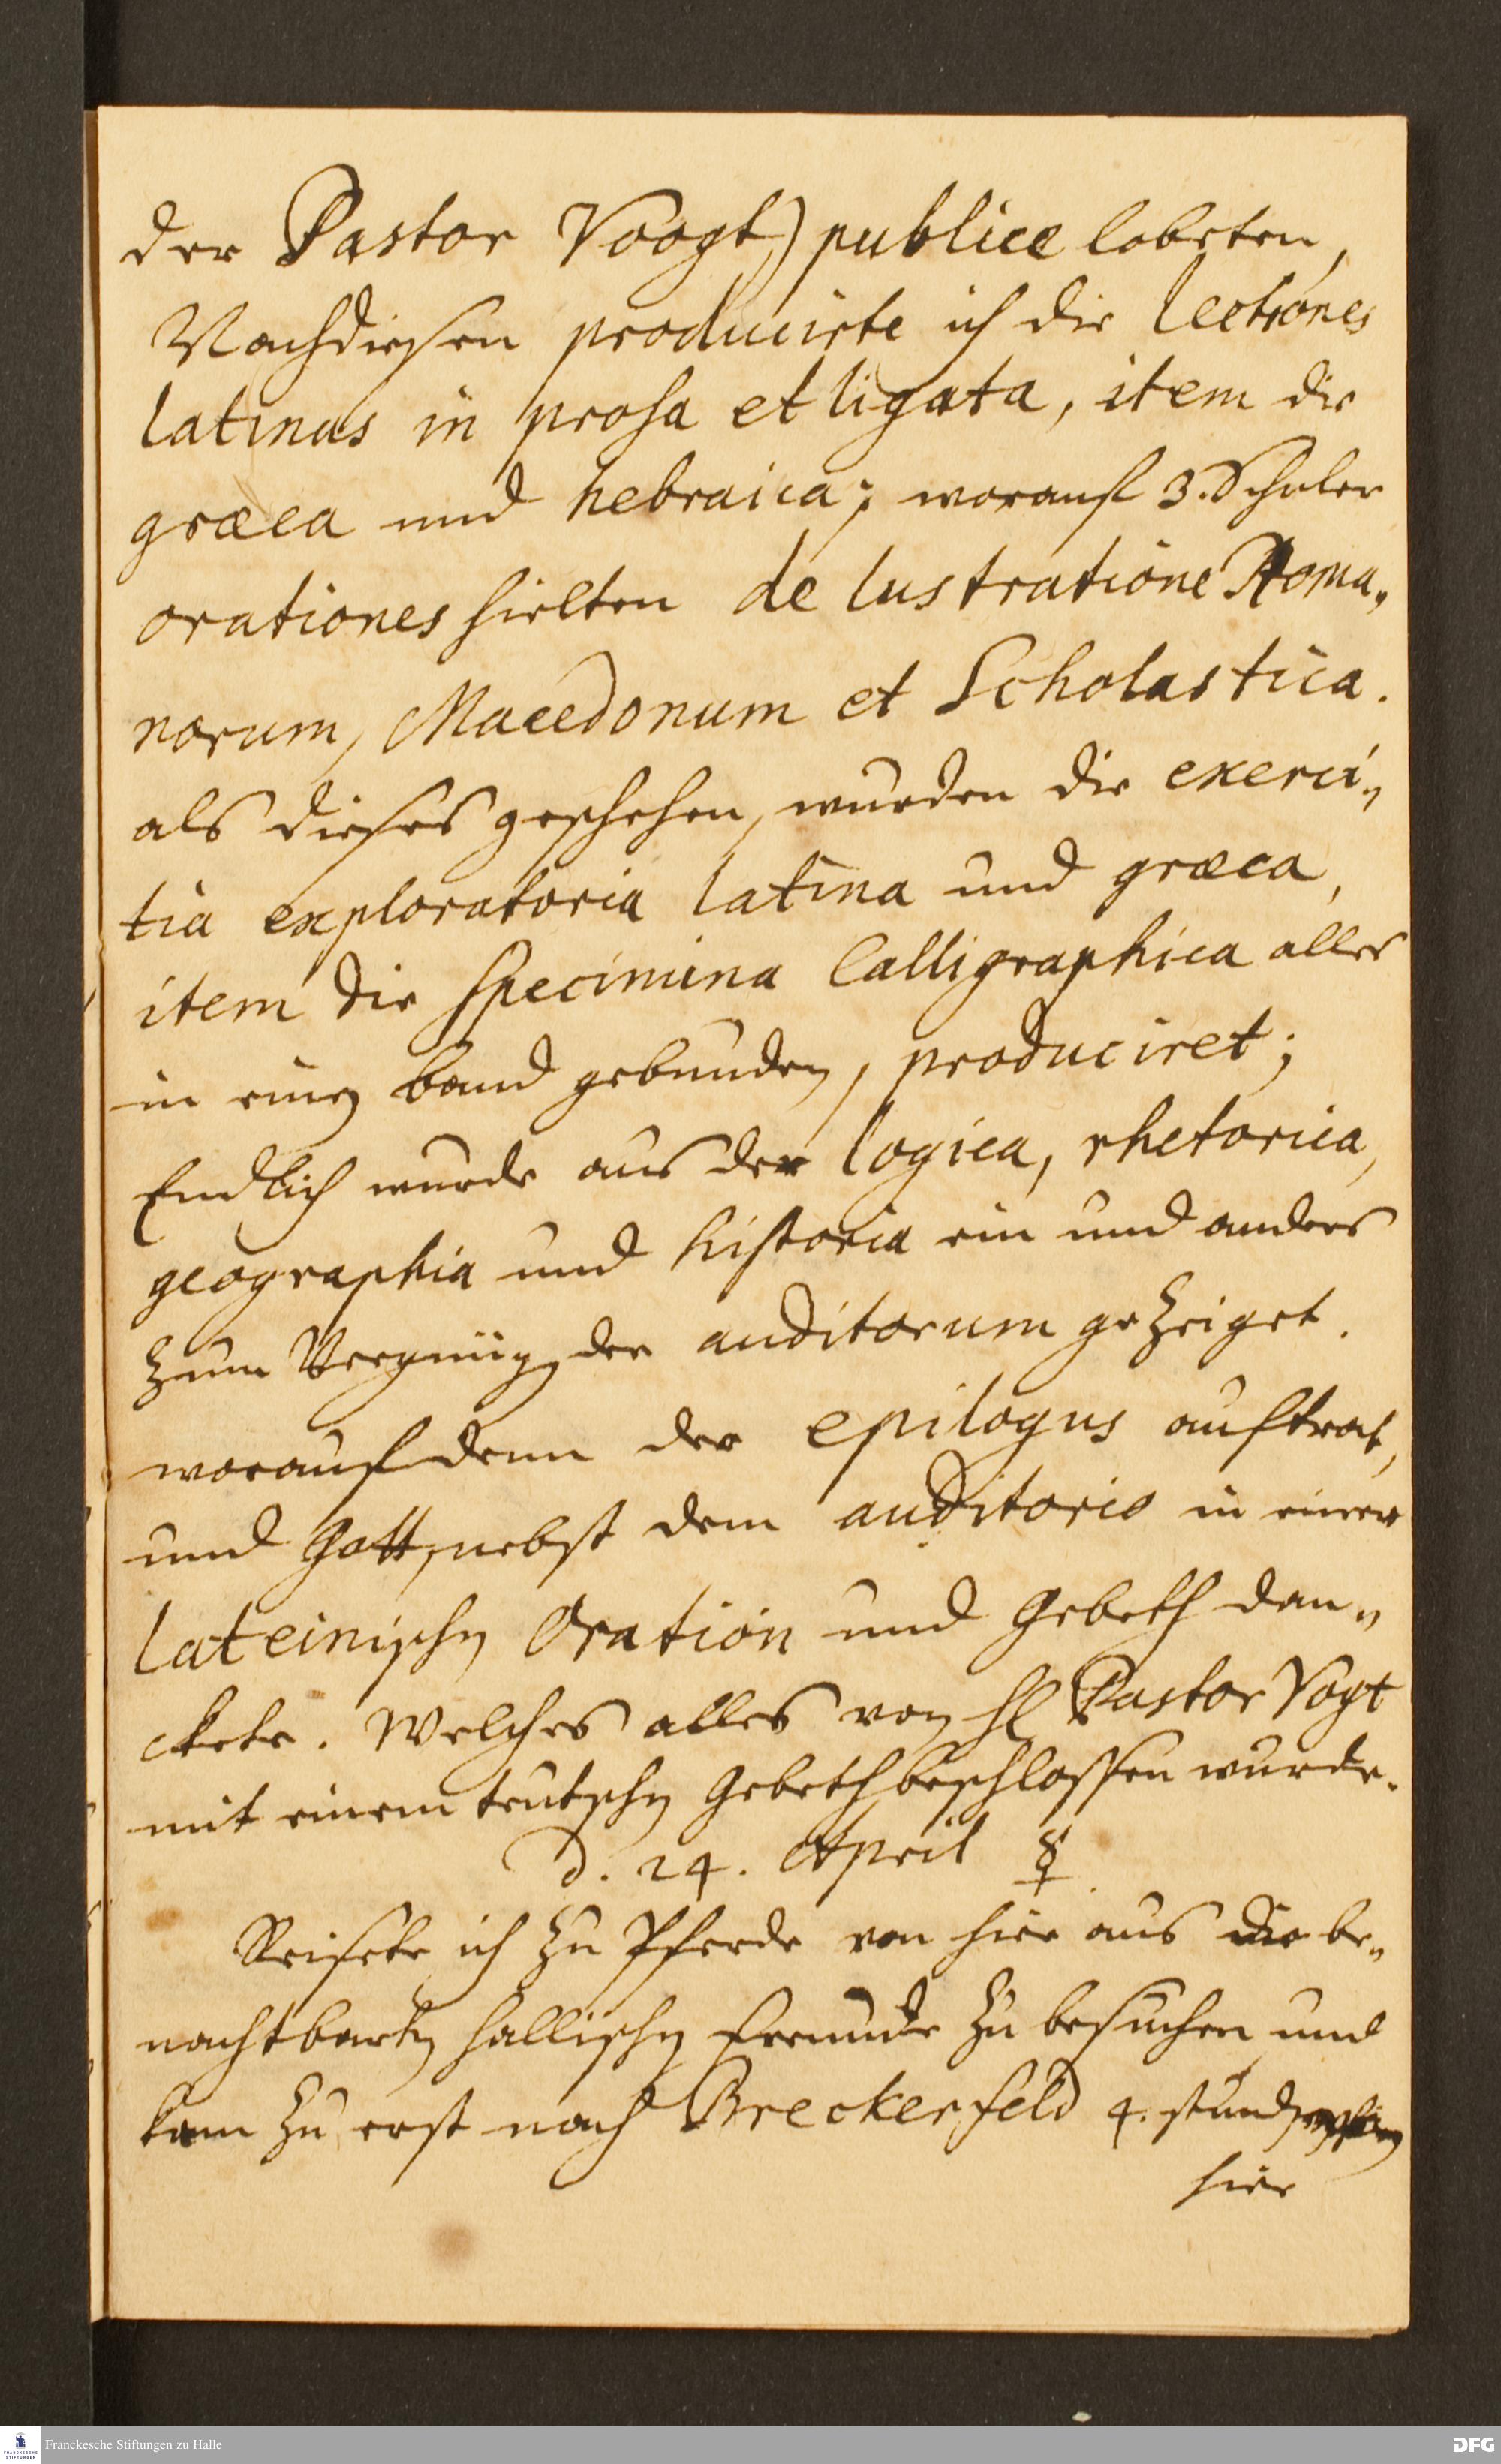 der Pastor Voogt) publice lobeten,
Nachdiesen producirte ich die lectiones
latinas in prosa et ligata, item die
græca und hebraica; worauf 3. Schuler
orationes hielten de lustratione Roma„
norum, Macedonum et Scholastica.
als dieses geschehen, wurden die exerci„
tia exploratoria latina und græca,
item die Specimina Calligraphica alles
in einen band gebunden, produciret;
Endlich wurde aus der logica, rhetorica,
geographia und historia ein und anders
zum Vergnügen der auditorum gezeiget.
worauf denn der epilogus auftrat,
und Gott, nebst dem auditorio in einer
lateinischen Oration und Gebeth dan„
ckete. Welches alles von H Pastor Vogt
mit einem teutschen Gebeth beschlossen wurde.
d. 24. April ☿
Reisete ich zu Pferde von hier aus die be„
nachtbarten hallischen freunde zu besuchen und
kam zu erst nach Breckerfeld 4. stunden
hier
Franckesche Stiftungen zu Halle
DFG